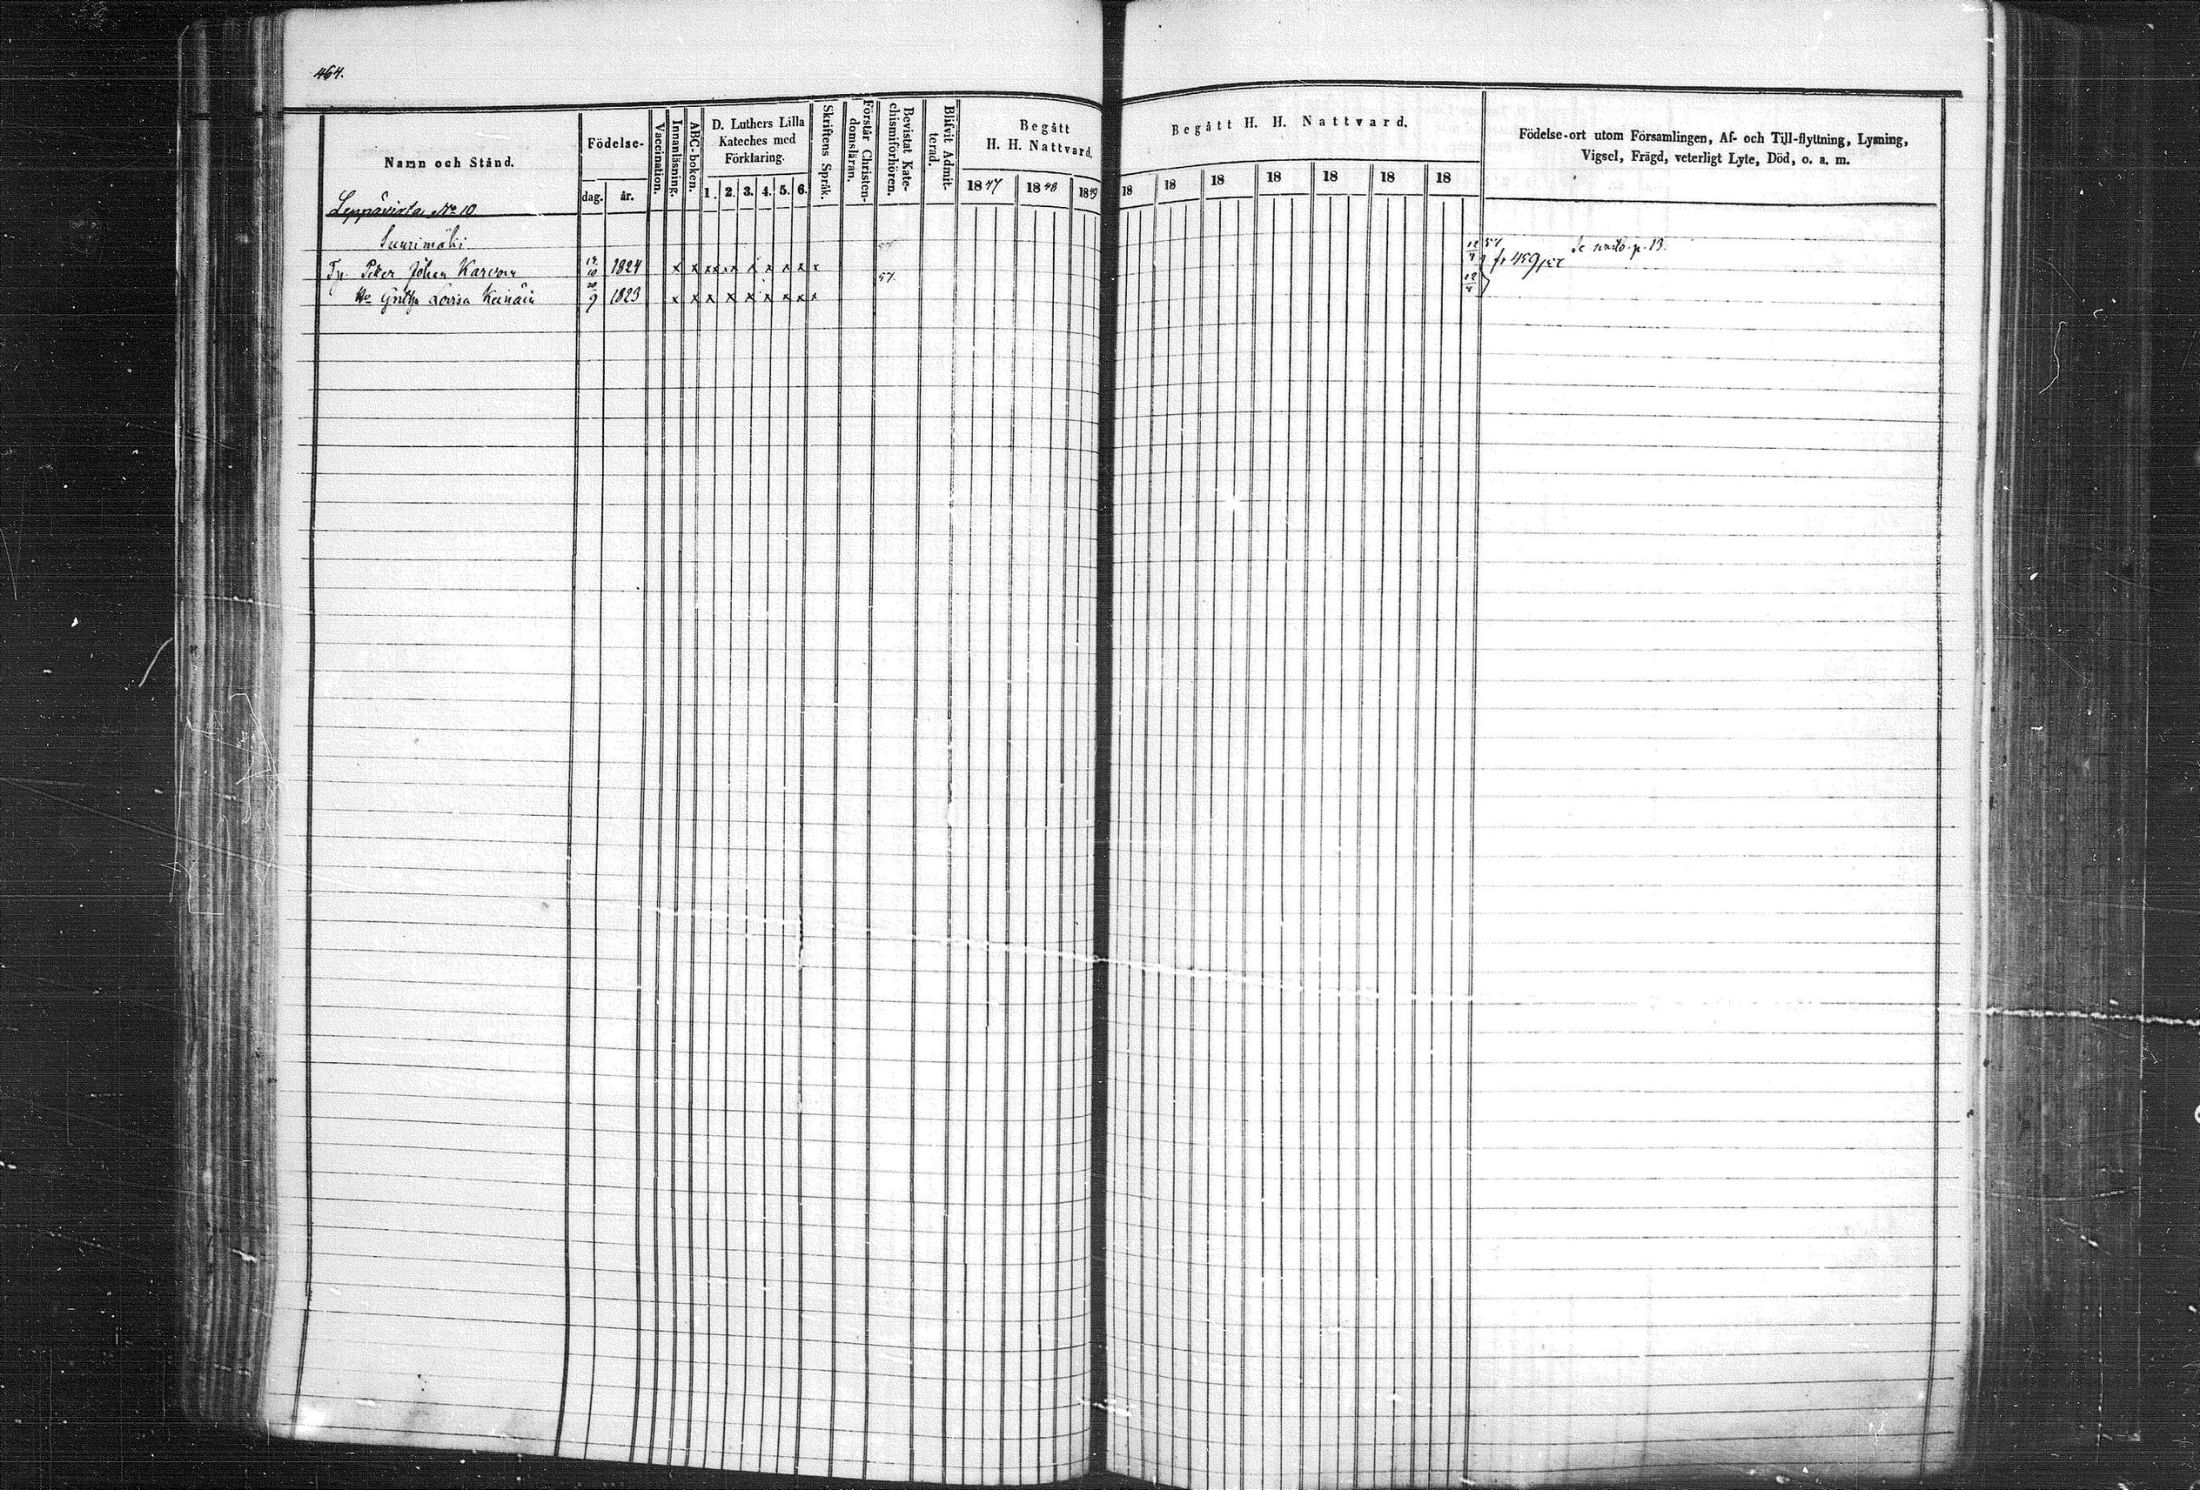 464.
Namn och Stånd.
Födelse-
dag.
år.
Vaccination.
Innanläsning.
ABC-boken.
D. Luthers Lilla
Kateches med
Förklaring.
1. 2. 3. 4. 5. 6.
Skriftens Språk.
Förstår Christen-
domsläran.
Bevistat Kate-
chismiförhören.
Blifvit Admit-
terad.
Begått
H. H. Nattvard.
1847 1848 1849
Begått H. H. Nattvard.
18 18 18 18 18 18 18
Födelse-ort utom Församlingen, Af- och Till-flyttning, Lysning,
Vigsel, Frägd, veterligt Lyte, Död, o. a. m.
Leppävirta No 10
Suurimäki
Peter Johan Karvon 1824 x x x x x x x x x x 57
Lovisa Keinäin 1823 x x x x x x x x x 57
p. 13.